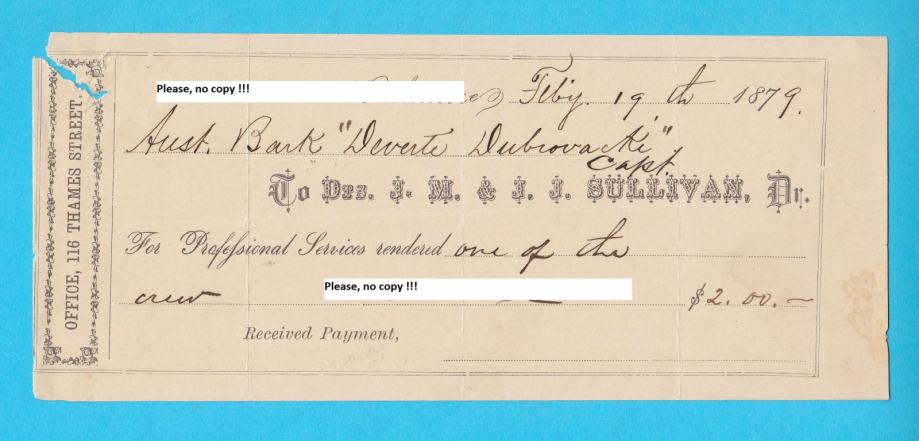 Please, no copy !!! Feb'y. 19 th 1879.
Aust. Bark "Deverte Dubrovacki"
Capt.
To Drs. J. M. & J. J. SULLIVAN, Dr.
For Professional Services rendered one of the
crew Please, no copy !!! $2.00.-
Received Payment,
OFFICE, 116 THAMES STREET.